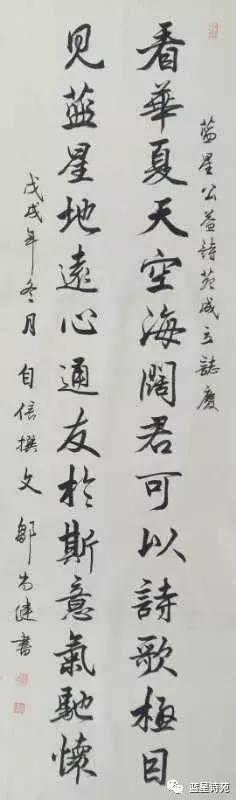 蓝星公益詩苑成立誌慶
看華夏天空海闊君可以詩歌極目
見藍星地遠心通友於斯意氣馳懷
戊戌年冬月自信撰文鄒尚健書
蓝星诗苑